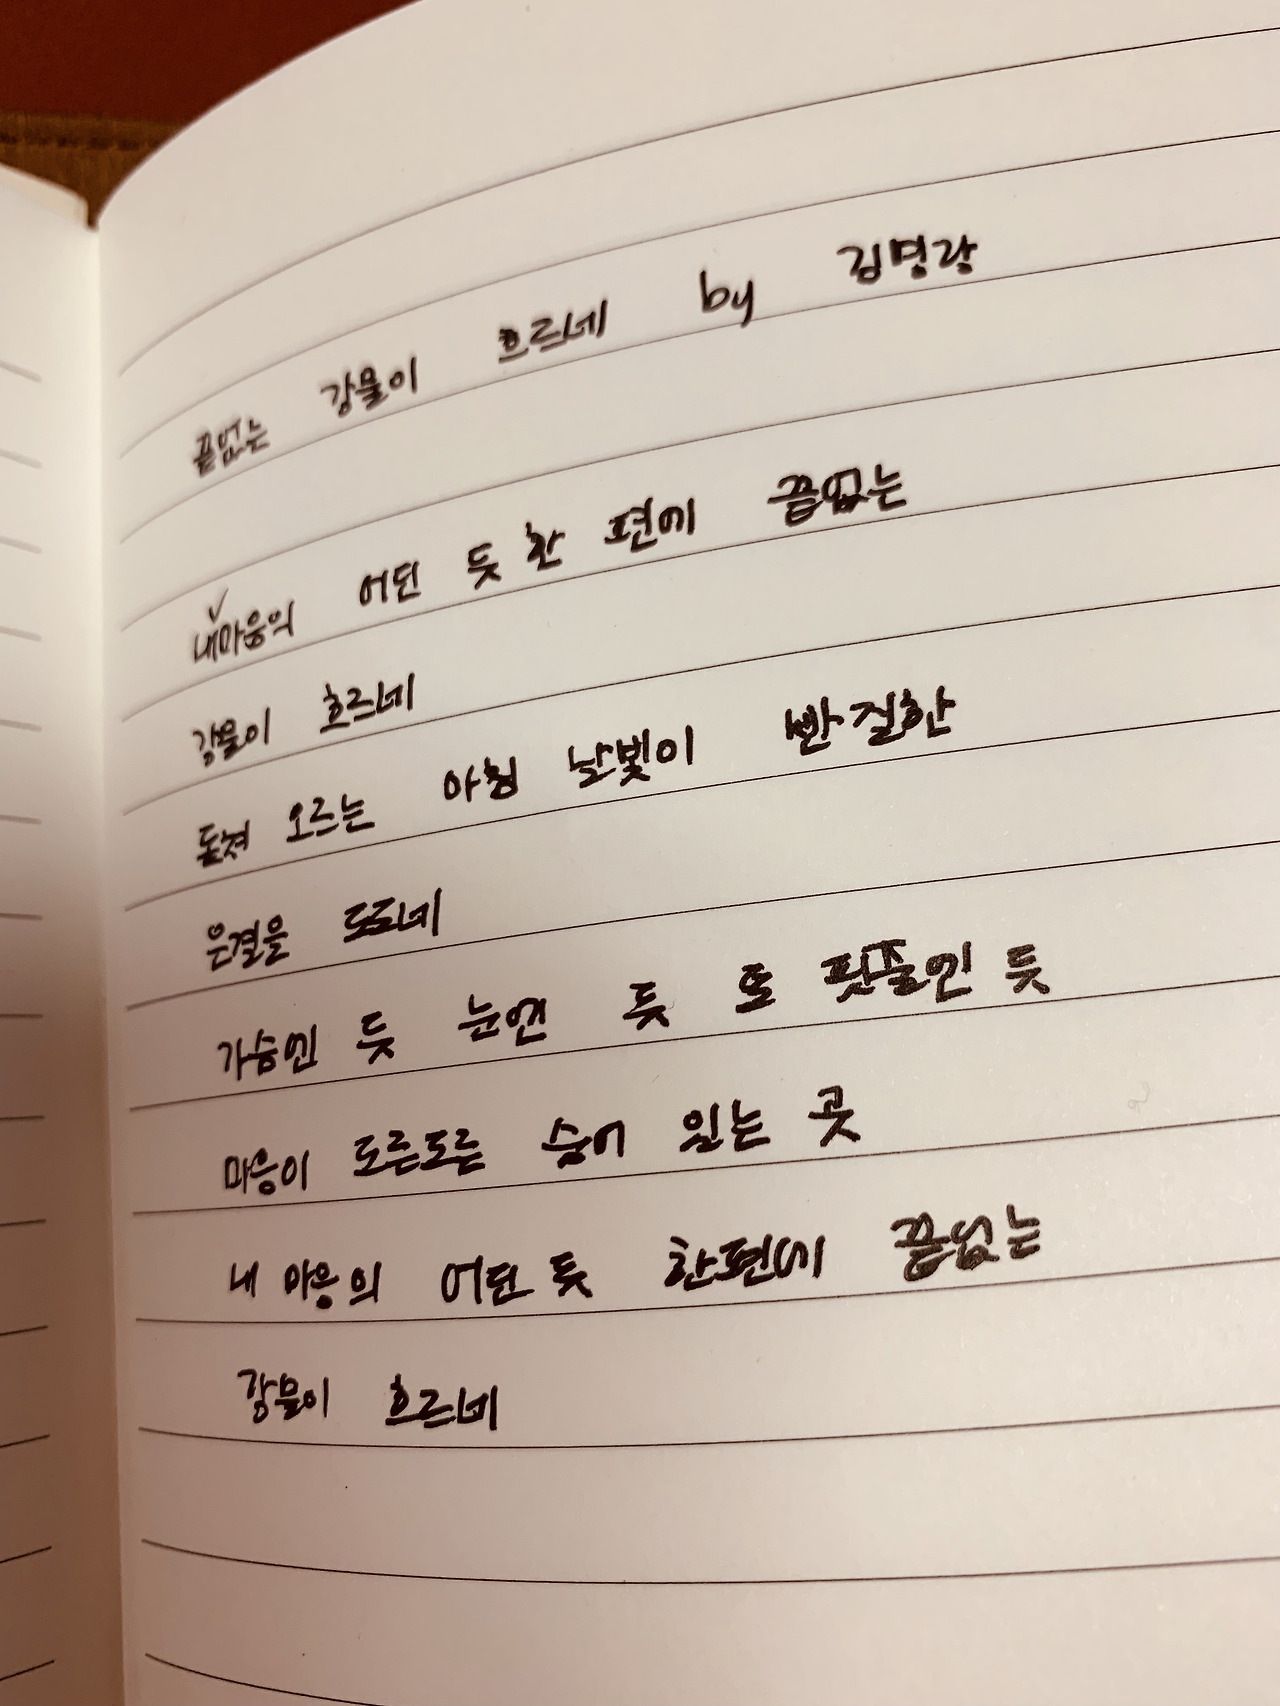 끝없는 강물이 흐르네 by 김영랑
내마음의 어딘 듯 한 편에 끝없는
강물이 흐르네
돋쳐 오르는 아침 날빛이 빤질한
은결을 도도네
가슴엔 듯 눈엔 듯 또 핏줄엔 듯
마음이 도른도른 숨어 있는 곳
내 마음의 어딘 듯 한편에 끝없는
강물이 흐르네